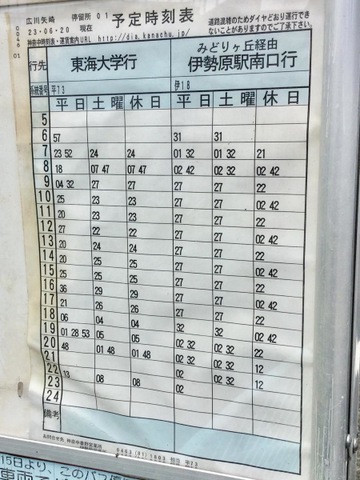 広川矢崎 停留所 01 予定時刻表
23-06-20 現在
神奈中時刻表・運賃案内URL http://dia.kanachu.jp/
道路混雑のためダイヤどおり運行できないことがありますのでご了承下さい。
行先 東海大学行 みどりヶ丘経由
伊勢原駅南口行
系統番号 平13 伊18
平日 土曜 休日 平日 土曜 休日
5
6 57 31 31
7 23 52 24 24 01 32 01 32 21
8 18 07 47 07 47 02 42 02 42
9 04 32 27 27 27 27 02 42
10 25 29 29 27 27 22
11 20 23 23 27 27 22
12 20 23 23 27 27 22
13 20 24 24 27 27 02 42
14 25 25 25 27 27 02 42
15 25 29 29 27 27 22
16 25 29 29 27 27 22
17 21 26 26 27 27 02 42
18 06 04 04 27 27 02 42
19 01 28 53 05 05 32 32 02 42
20 48 01 48 01 48 02 32 02 32 02 42
21 02 32 02 32 12
22 13 08 08 02 32 02 32 12
23 02
24
備考
15日より、このバス停